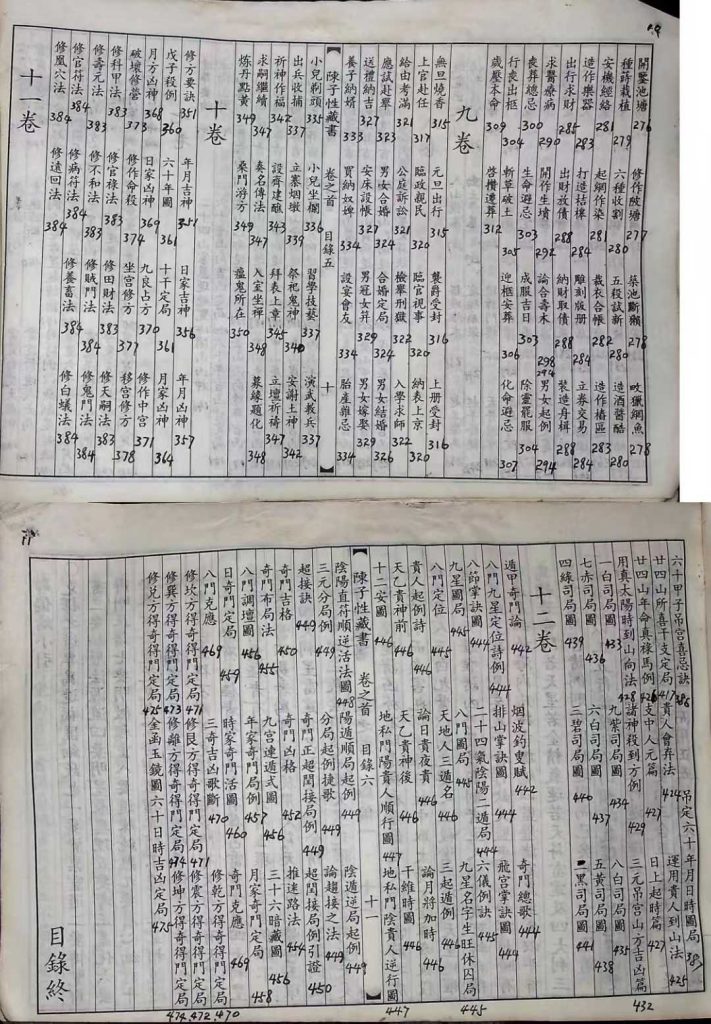 開鑿池塘 276 修作陂塘 277 築池斷獺 278 畋獵網魚 278
種蒔栽植 279 六種收割 280 五穀試新 280 造酒醬酷 280
安機經絡 281 起網作染 281 裁衣合帳 282 造作樁區 283
造作樂器 283 打造桔槔 284 雕刻版册 284 立券交易 284
出行求財 285 出財放債 288 納財取債 288 裝造舟楫 288
求醫療病 290 開作生墳 292 論合壽木 294 男女起例 294
喪葬總忌 300 生命避忌 303 成服吉日 303 除靈罷服 304
行喪出柩 304 斬草破土 305 迎柩安葬 306 化命避忌 307
歲壓本命 309 啓攢遷葬 312
九卷
無旦燒香 315 元旦出行 315 襲爵受封 316 上册受封 316
上官赴任 317 臨政親民 320 臨官視事 320 納表上京 320
給由考滿 321 公庭訴訟 321 檢舉刑獄 322 入學求師 322
應試赴舉 323 男女合婚 324 合婚定局 322 男女結婚 326
送禮納吉 327 安床設帳 327 男冠女笄 329 男女嫁娶 329
養子納婿 333 買納奴婢 334 設宴會友 334 胎產雜忌 334
陳子性藏書 卷之首 目錄五 十
小兒剃頭 335 小兒坐欄 336 習學技藝 337 演武教兵 337
出兵收捕 337 立寨烟墩 339 祭祀鬼神 340 安謝土神 342
祈神作福 342 設齊建醮 343 拜表上章 345 立壇祈禱 347
求嗣繼續 347 奏名傳法 347 入室坐禪 348 募緣題化 348
炼丹點黃 349 桑門游方 349 瘟鬼所在 350
十卷
修方要訣 351 年月吉神 351 日家吉神 356 年月凶神 357
戊子殺例 360 六十年圖 361 十干定局 361 月家凶神 364
月方凶神 368 日家凶神 369 九良占方 370 修作中宮 371
破壞修營 373 修作命殺 374 坐宮修方 377 移宮修方 378
修科甲法 383 修官祿法 383 修田財法 383 修天嗣法 383
修壽元法 383 修不和法 383 修賊門法 384 修鬼門法 384
修官符法 384 修病符法 384 修養蓄法 384 修白蟻法 384
修凰穴法 384 修遠回法 384
十一卷
六十甲子吊宮喜忌訣 386 吊定六十年月日時圖局 385
廿四山所喜干支定局 417 貴人會弃法 424 運用貴人到山法 425
廿四山年命真祿馬例 426 支中人元篇 427 日上起時篇 427
用真太陽時到山向法 428 諸神殺到方例 429 三元吊宮山方吉凶篇 432
一白司局圖 433 九紫司局圖 434 八白司局圖 435
七赤司局圖 436 六白司局圖 437 五黃司局圖 438
四綠司局圖 439 三碧司局圖 440 二黑司局圖 441
十二卷
遁甲奇門論 442 烟波釣叟賦 442 奇門總歌 444
八門九星定位詩例 444 排山掌訣圖 444 龍宮掌訣圖 444
八節掌訣圖 444 二十四氣陰陽二遁局 444 六儀例訣 445
九星圖局 445 八門圖局 445 九星名字生旺休囚局 445
八門定位 446 天地人三遁名 446 三起遁例 446
貴人起例詩 446 論日貴夜貴 446 論月將加時 446
天乙貴神前 446 天乙貴神後 446 干維時圖 446
十二安圖 446 地私門陽貴人順行圖 447 地私門陰貴人逆行圖 447
陳子性藏書 卷之首 目錄六 十一
陰陽直符順逆活法圖 448 陽遁順局起例 449 陰遁逆局起例 449
三元分局例 449 分局起例捷歌 449 論超接之法 449
超接訣 449 奇門正超閏接局例 449 超閏接局例引證 450
奇門吉格 450 奇門凶格 452 推迷路法 454
奇門布局法 455 九宮連遁式圖 456 三十六暗藏圖 456
八門調壇圖 456 年家奇門局例 457 月家奇門定局 458
日奇門定局 459 時家奇門活圖 460 奇門克應 469
八門克應 469 三奇吉凶歌斷 470 修乾方得奇得門定局 470
修坎方得奇得門定局 471 修艮方得奇得門定局 471 修震方得奇得門定局 472
修巽方得奇得門定局 473 修離方得奇得門定局 474 修坤方得奇得門定局 474
修兌方得奇得門定局 475 金函玉鏡圖六十日時吉凶定局 475
目錄終